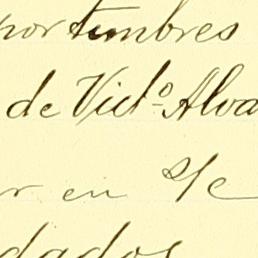 por timbres
de Vict.º Alva
r en s/c
dados